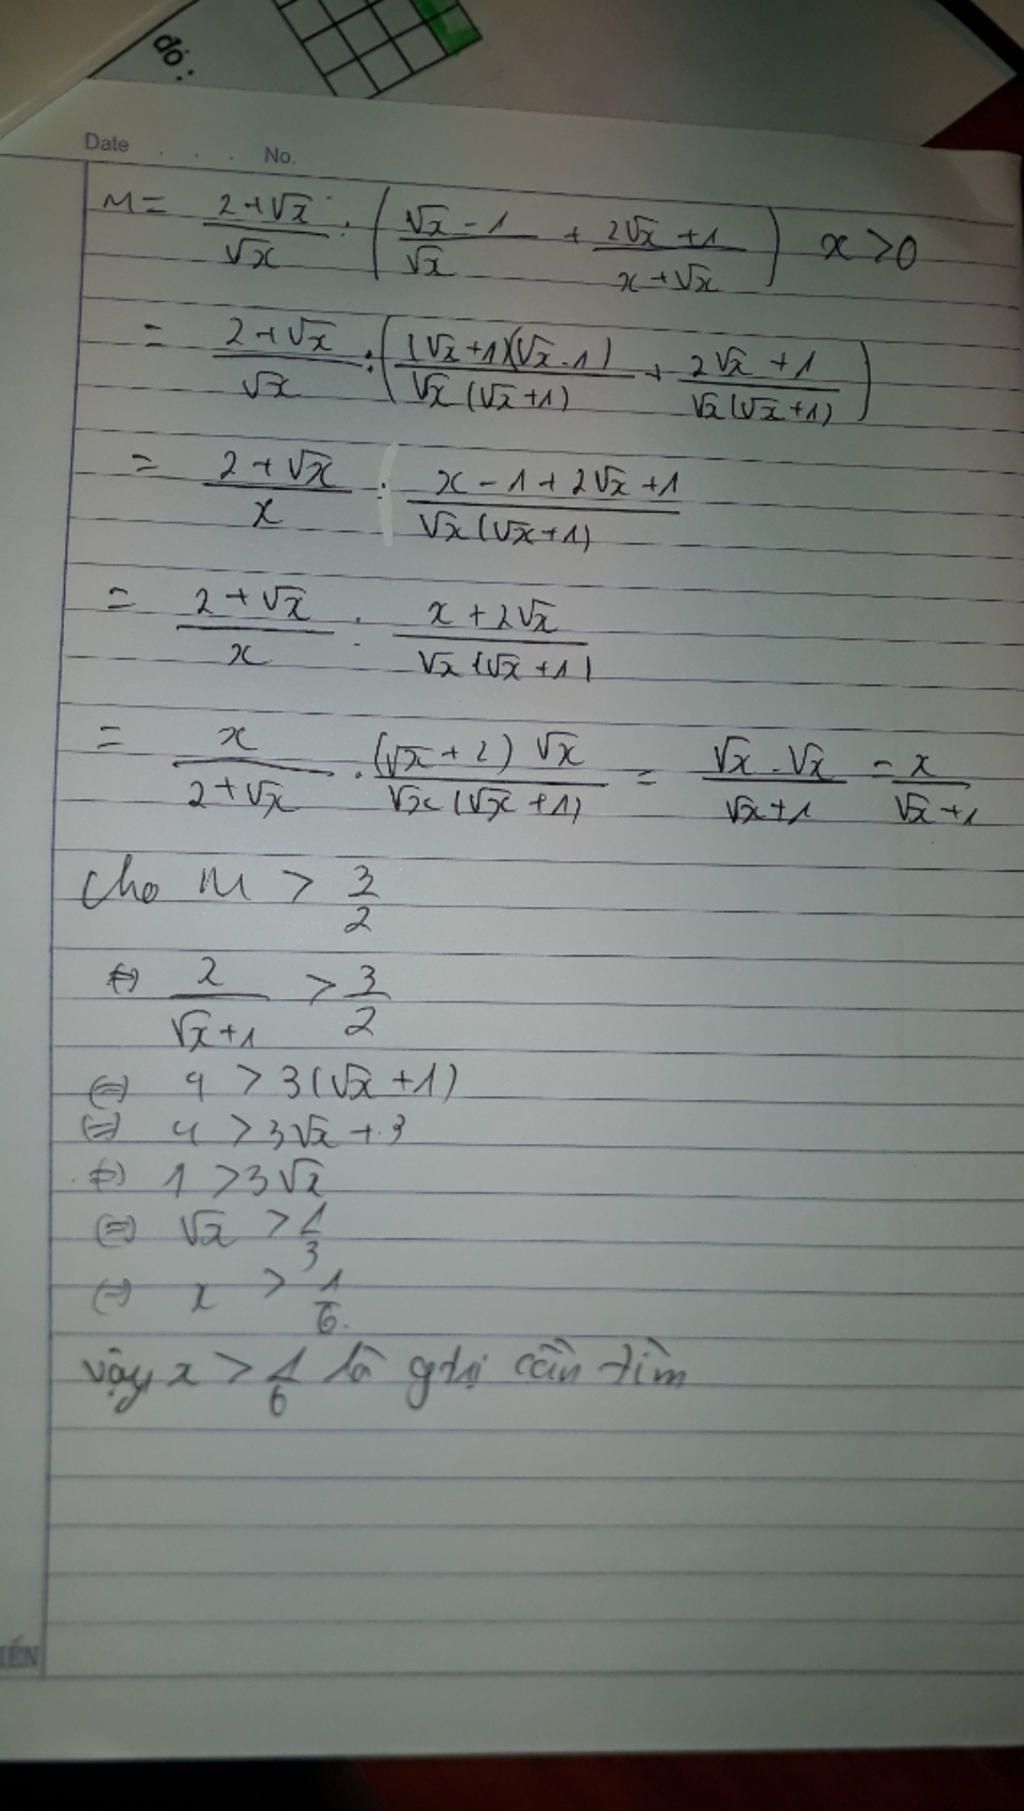 đó:
Date . . . No.
M = \frac{2+√x}{√x} : ( \frac{√x - 1}{√x} + \frac{2√x + 1}{x+√x} ) x > 0
= \frac{2+√x}{√x} : ( \frac{(√x+1)(√x-1)}{√x(√x+1)} + \frac{2√x+1}{√x(√x+1)} )
= \frac{2+√x}{x} : \frac{x-1+2√x+1}{√x(√x+1)}
= \frac{2+√x}{x} : \frac{x+2√x}{√x(√x+1)}
= \frac{x}{2+√x} . \frac{(√x+2)√x}{√x(√x+1)} = \frac{√x.√x}{√x+1} = \frac{x}{√x+1}
Cho M > \frac{3}{2}
⇔ \frac{2}{√x+1} > \frac{3}{2}
⇔ 4 > 3(√x+1)
⇔ 4 > 3√x + 3
⇔ 1 > 3√x
⇔ √x > \frac{1}{3}
⇔ x > \frac{1}{6}.
vậy x > \frac{1}{6} là gtrị cần tìm
IẾN